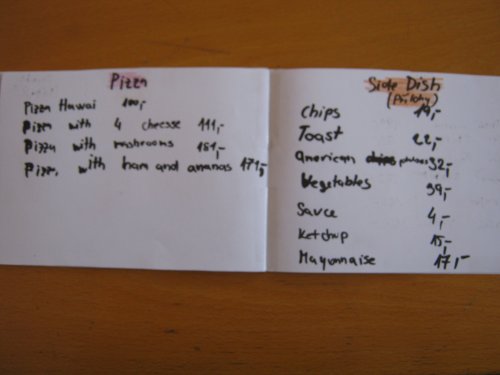 Pizza
Pizza Hawai 100,-
Pizza with 4 cheesse 111,-
Pizza with mushrooms 181,-
Pizza with ham and ananas 171,-
Side Dish
(Přílohy)
Chips 19,-
Toast 22,-
American 32,-
Vegetables 39,-
Sauce 4,-
Ketchup 15,-
Mayonnaise 17,-